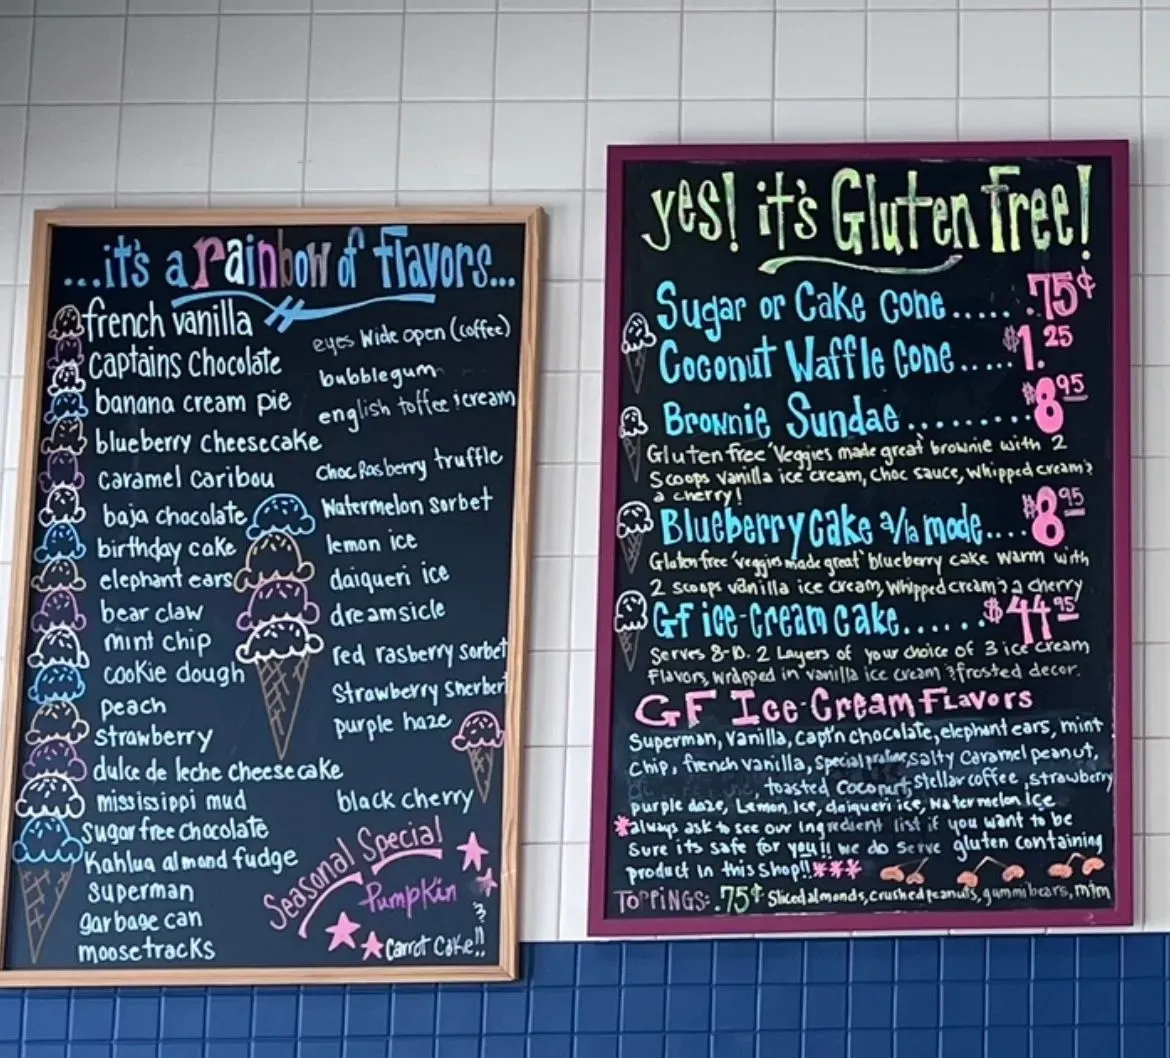 ...it's a rainbow of flavors...
french vanilla
captains chocolate
banana cream pie
blueberry cheesecake
caramel caribou
baja chocolate
birthday cake
elephant ears
bear claw
mint chip
cookie dough
peach
strawberry
dulce de leche cheesecake
mississippi mud
sugar free chocolate
Kahlua almond fudge
superman
garbage can
moosetracks
eyes wide open (coffee)
bubblegum
english toffee icream
choc Rasberry truffle
Watermelon sorbet
lemon ice
daiqueri ice
dreamsicle
red rasberry sorbet
Strawberry sherbert
purple haze
black cherry
Seasonal Special
Pumpkin
&
Carrot Cake!!
yes! it's Gluten Free!
Sugar or Cake cone...... .75¢
Coconut Waffle Cone.....$1.25
Brownie Sundae.........$8.95
Gluten free 'Veggies made great' brownie with 2
Scoops vanilla ice cream, choc sauce, whipped cream &
a cherry!
Blueberry cake a/la mode....$8.95
Gluten free 'veggies made great' blueberry cake warm with
2 scoops vanilla ice cream, whipped cream & a cherry
Gf ice-cream cake......$44.95
Serves 8-10. 2 Layers of your choice of 3 ice cream
flavors, wrapped in vanilla ice cream & frosted decor.
GF Ice-Cream Flavors
Superman, vanilla, capt'n chocolate, elephant ears, mint
chip, french vanilla, special praline, salty caramel peanut,
toasted coconut, stellar coffee, strawberry
purple daze, Lemon Ice, daiqueri ice, watermelon Ice
*always ask to see our Ingredient list if you want to be
sure its safe for you!! we do serve gluten containing
product in this shop!!***
TOPPINGS: .75¢ Sliced almonds, crushed peanuts, gummi bears, m+m